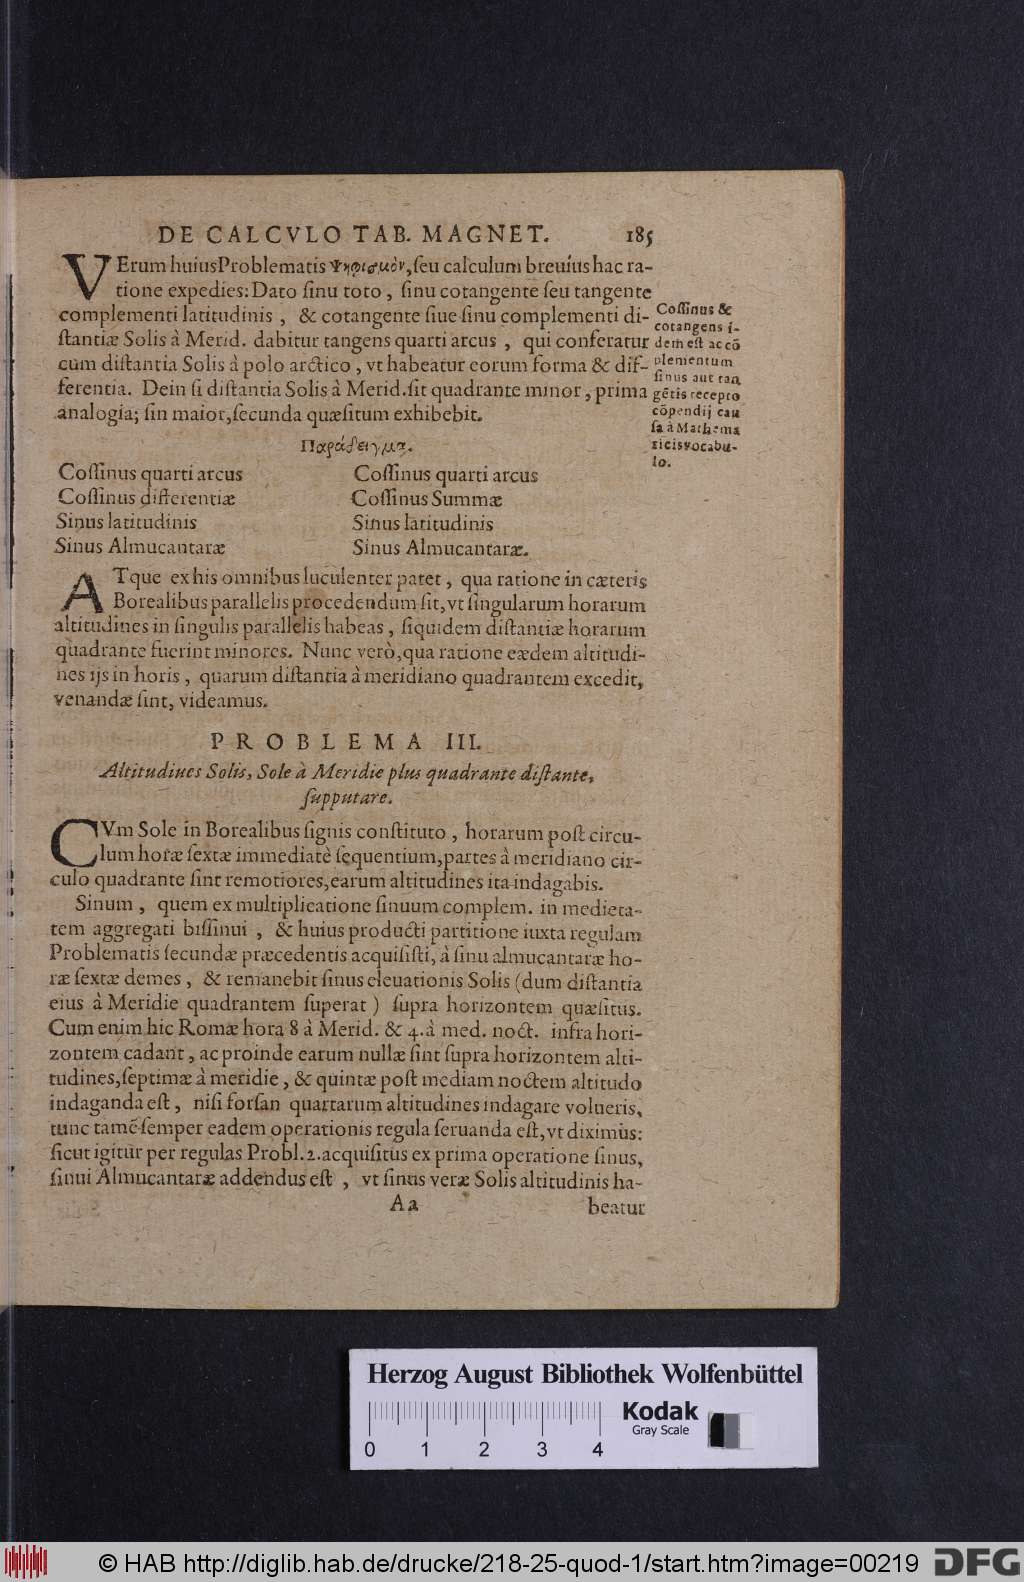 DE CALCVLO TAB. MAGNET. 185
VErum huiusProblematis Ψηφισμὸν, ſeu calculum breuius hac ra-
tione expedies: Dato ſinu toto, ſinu cotangente ſeu tangente
complementi latitudinis, & cotangente ſiue ſinu complementi di-
ſtantiæ Solis à Merid. dabitur tangens quarti arcus, qui conferatur
cum diſtantia Solis à polo arctico, vt habeatur eorum forma & dif-
ferentia. Dein ſi diſtantia Solis à Merid. ſit quadrante minor, prima
analogia; ſin maior, ſecunda quæſitum exhibebit.
Coſſinus &
cotangens i-
dem eſt ac cō
plementum
ſinus aut tan
gētis recepto
cōpendij cau
ſa à Mathema
ticis vocabu-
lo.
Παράδειγμα.
Coſſinus quarti arcus Coſſinus quarti arcus
Coſſinus differentiæ Coſſinus Summæ
Sinus latitudinis Sinus latitudinis
Sinus Almucantaræ Sinus Almucantaræ.
ATque ex his omnibus luculenter patet, qua ratione in cæteris
Borealibus parallelis procedendum ſit, vt ſingularum horarum
altitudines in ſingulis parallelis habeas, ſiquidem diſtantiæ horarum
quadrante fuerint minores. Nunc verò, qua ratione eædem altitudi-
nes ijs in horis, quarum diſtantia à meridiano quadrantem excedit,
venandæ ſint, videamus.
PROBLEMA III.
Altitudines Solis, Sole à Meridie plus quadrante diſtante,
ſupputare.
CVm Sole in Borealibus ſignis conſtituto, horarum poſt circu-
lum horæ ſextæ immediatè ſequentium, partes à meridiano cir-
culo quadrante ſint remotiores, earum altitudines ita indagabis.
Sinum, quem ex multiplicatione ſinuum complem. in medieta-
tem aggregati biſſinui, & huius producti partitione iuxta regulam
Problematis ſecundæ præcedentis acquiſiſti, à ſinu almucantaræ ho-
ræ ſextæ demes, & remanebit ſinus eleuationis Solis (dum diſtantia
eius à Meridie quadrantem ſuperat) ſupra horizontem quæſitus.
Cum enim hic Romæ hora 8 à Merid. & 4. à med. noct. infra hori-
zontem cadant, ac proinde earum nullæ ſint ſupra horizontem alti-
tudines, ſeptimæ à meridie, & quintæ poſt mediam noctem altitudo
indaganda eſt, niſi forſan quartarum altitudines indagare volueris,
tunc tamē ſemper eadem operationis regula ſeruanda eſt, vt diximus:
ſicut igitur per regulas Probl. 2. acquiſitus ex prima operatione ſinus,
ſinui Almucantaræ addendus eſt, vt ſinus veræ Solis altitudinis ha-
Aa beatur
Herzog August Bibliothek Wolfenbüttel
0 1 2 3 4
Kodak
Gray Scale
© HAB http://diglib.hab.de/drucke/218-25-quod-1/start.htm?image=00219
DFG